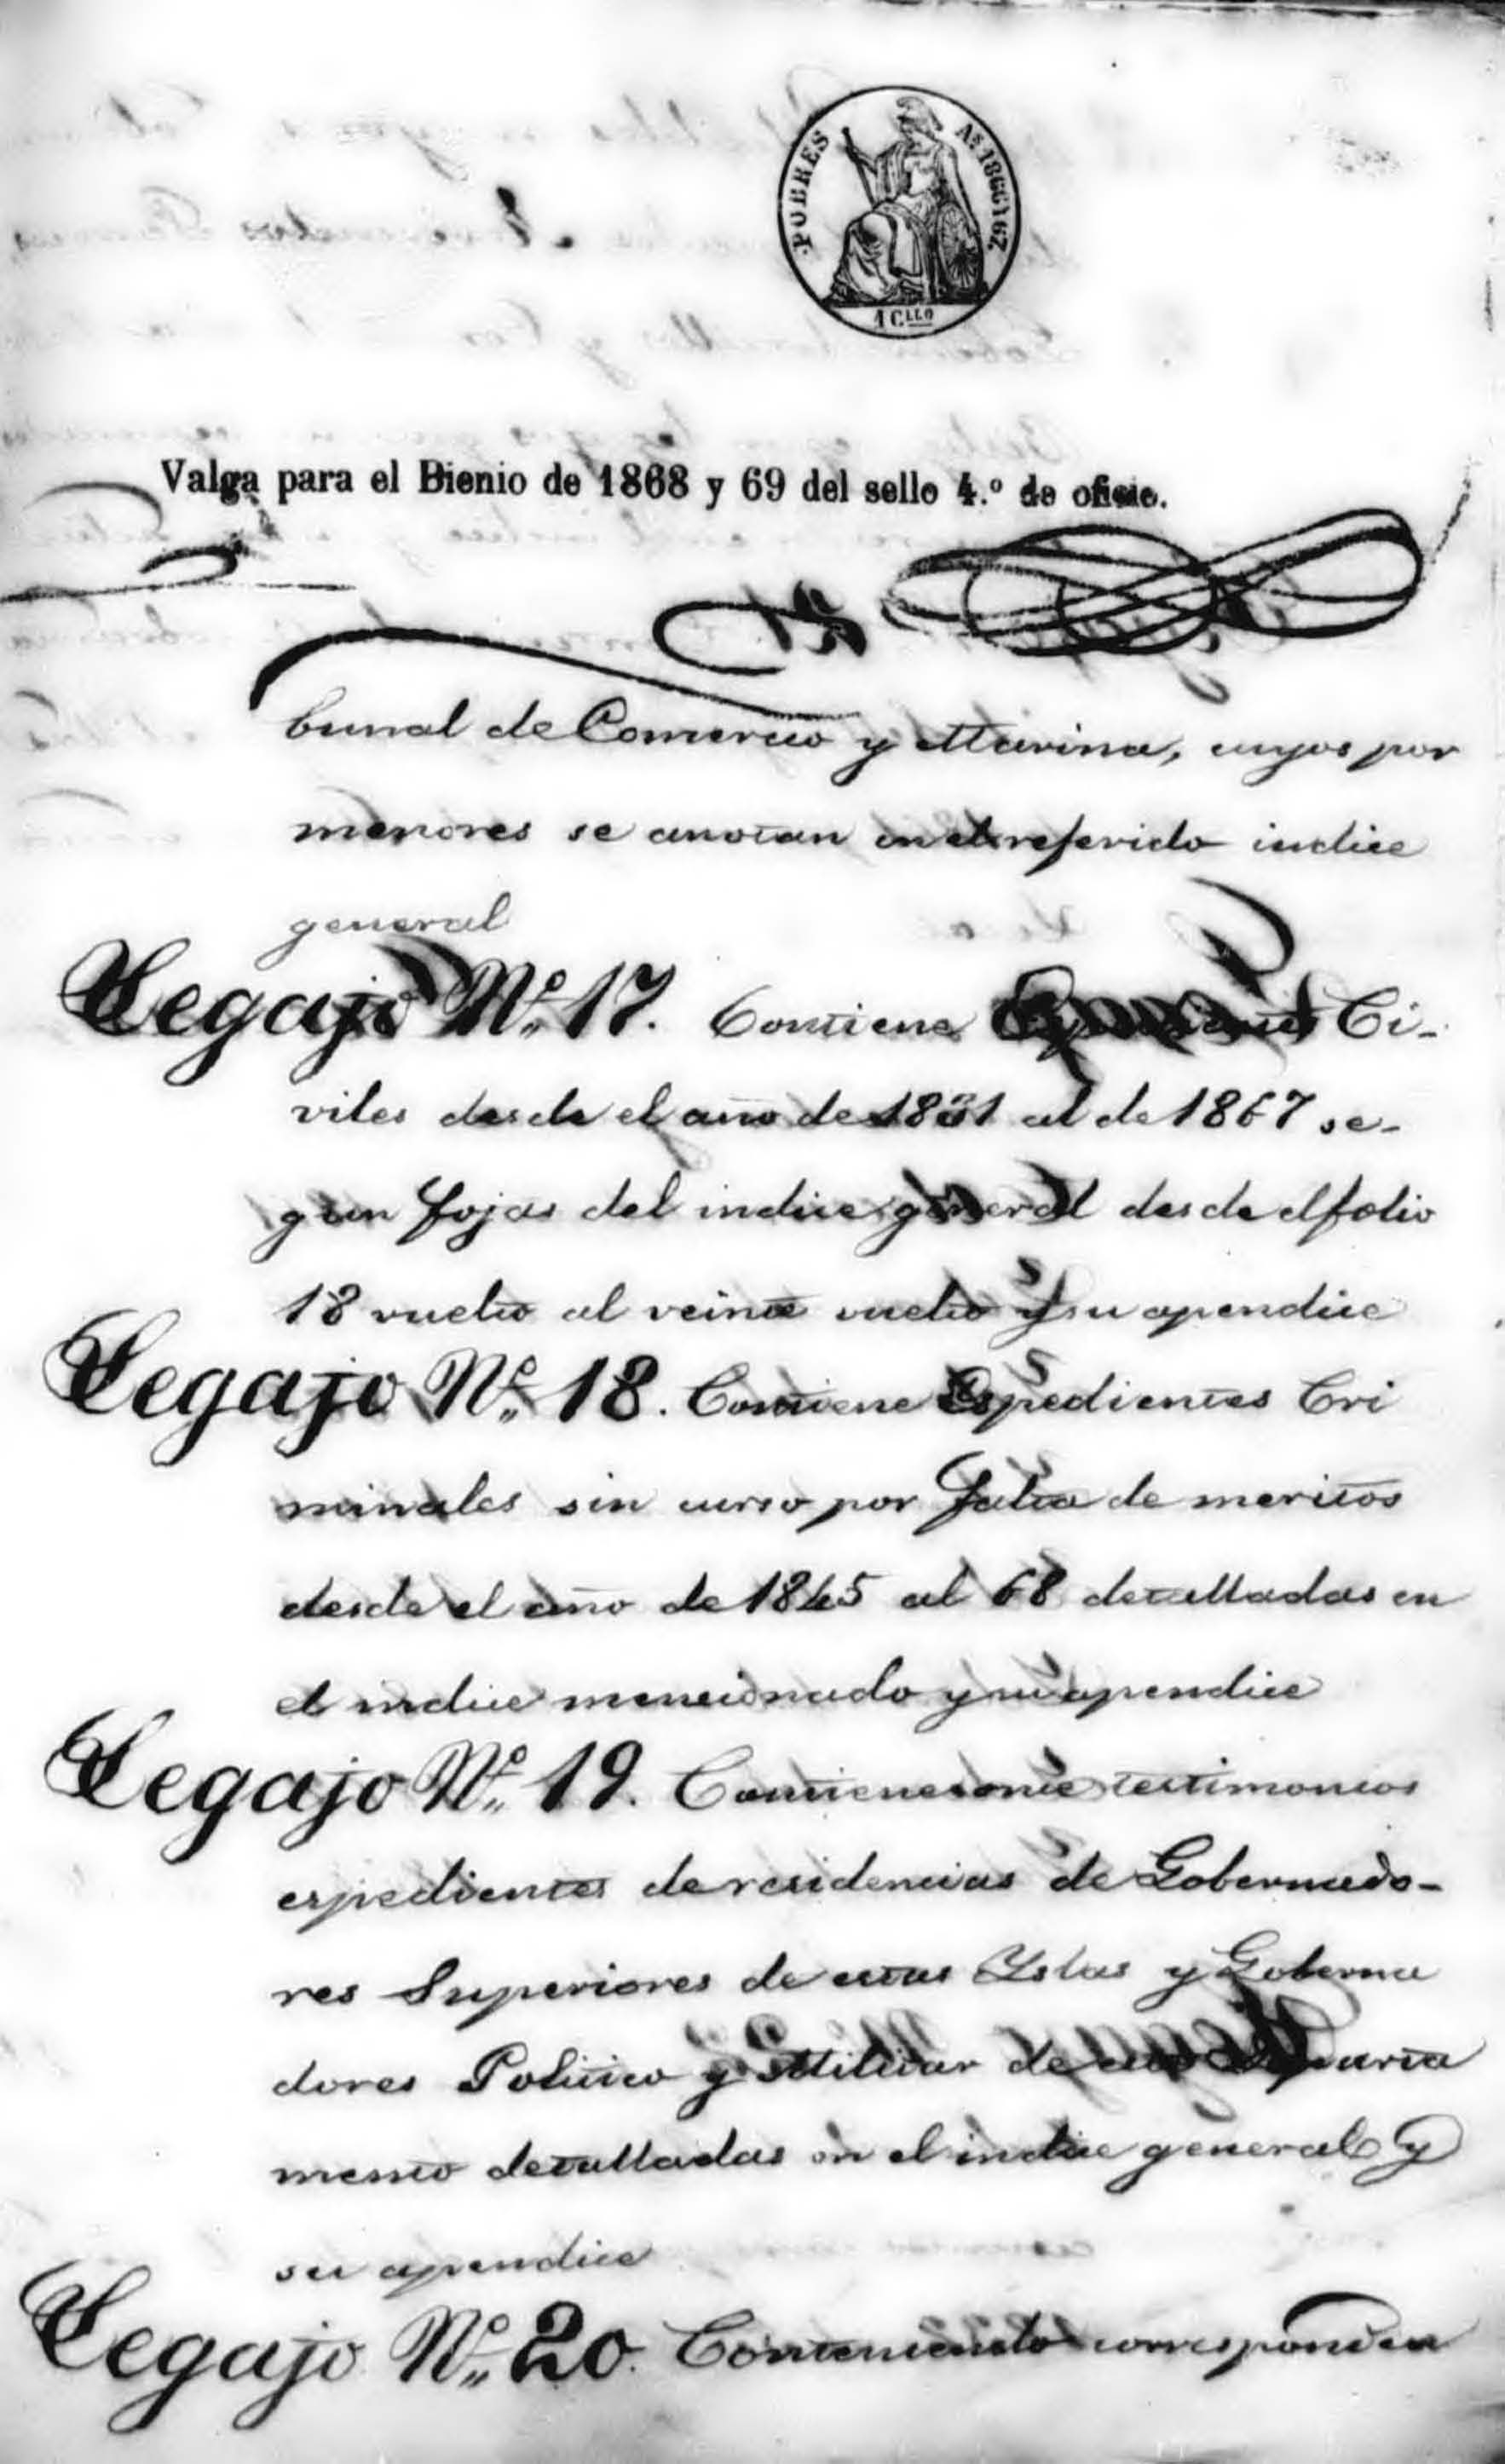 POBRES
As 1866 y 67.
1 Cllo
Valga para el Bienio de 1868 y 69 del sello 4.º de oficio.
bunal de Comercio y Marina, cuyos por
menores se anotan en el referido indice
general
Legajo Nº 17. Contiene Espedientes Ci-
viles desde el año de 1831 al de 1867 se-
gun fojas del indice general desde el folio
18 vuelto al veinte vuelto y su apendice
Legajo Nº 18. Contiene Espedientes Cri
minales sin curso por falta de meritos
desde el año de 1845 al 68 detalladas en
el indice mencionado y su apendice
Legajo Nº 19. Contiene once testimonios
espedientes de residencias de Gobernado-
res Superiores de estas Yslas y Goberna
dores Politico y Militar de este
mento detalladas en el indice general y
su apendice
Legajo Nº 20. Conteniendo corresponden